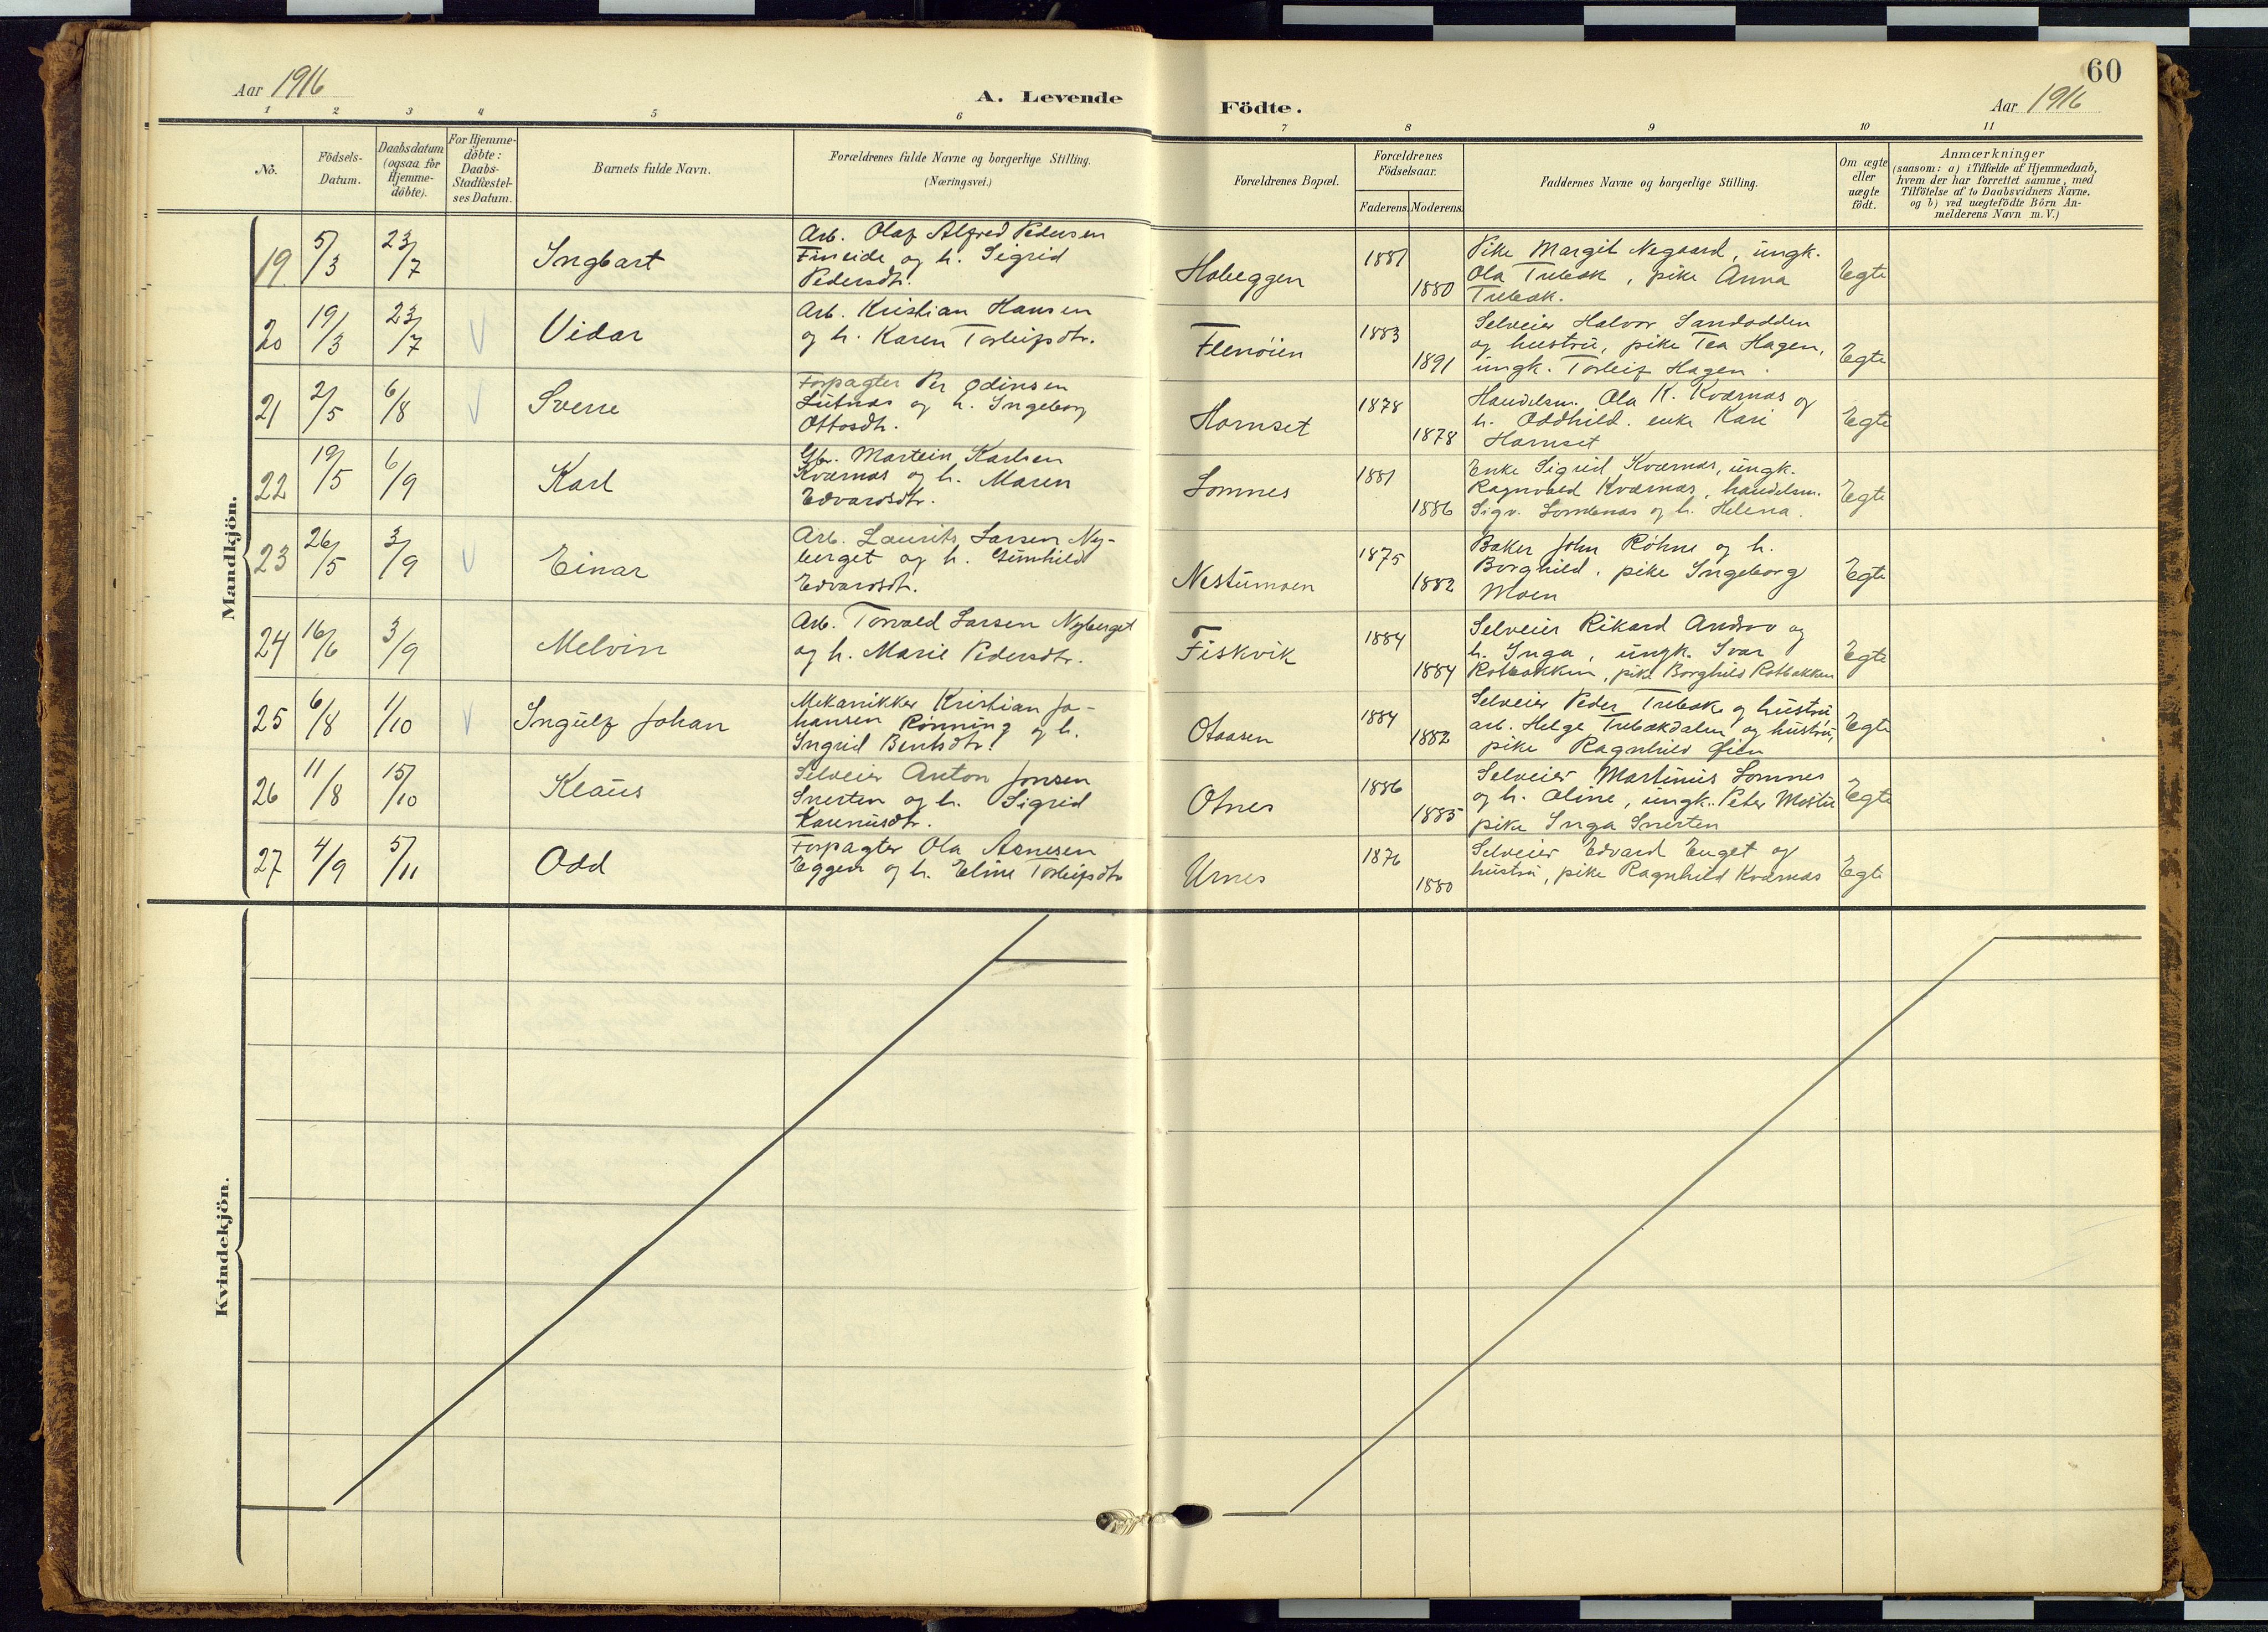 60
Aar 1916
A. Levende Födte.
Aar 1916
1 2 3 4 5 6 7 8 9 10 11
No.
Födsels-Datum.
Daabsdatum (ogsaa for Hjemme-döbte).
For Hjemme-döbte: Daabs-Stadfæstel-ses Datum.
Barnets fulde Navn.
Forældrenes fulde Navne og borgerlige Stilling.
(Næringsvei.)
Forældrenes Bopæl.
Forældrenes Födselsaar.
Faderens. Moderens.
Faddernes Navne og borgerlige Stilling.
Om ægte eller uægte födt.
Anmærkninger
(saasom: a) i Tilfælde af Hjemmedaab,
hvem der har forrettet samme, med
Tilföielse af to Daabsvidners Navne,
og b) ved uægtefödte Börn An-
melderens Navn m. V.)
Mandkjön.
19. 5/3 23/7 Ingbart
Arb. Olaf Alfred Pedersen
Fineide og h. Sigrid
Pedersdtr.
Haheggen 1881 1880
Pike Margit Negaard, ungk.
Ola Trebæk, pike Anna
Trebæk.
Egte
20 19/3 23/7 Vidar
Arb. Kristian Hansen
og h. Karen Torleifsdtr.
Flenöien 1883 1891
Selveier Halvor Sandodden
og hustru, pike Tea Hagen,
ungk. Torleif Hagen.
Egte
21 2/5 6/8 Sverre
Forpagter Per Odinsen
Lutnæs og h. Ingeborg
Ottosdtr.
Hornset 1878 1878
Handelsm. Ola K. Kværnæs og
h. Oddhild. enke Kari
Hornset
Egte
22 19/5 6/9 Karl
Gbr. Martein Karlsen
Kværnæs og h. Maren
Edvardsdtr.
Lomnes 1881 1886
Enke Sigrid Kværnæs, ungk.
Ragnvald Kværnæs, handelsm.
Sigv. Lomnæs og h. Helena.
Egte
23 26/5 3/9 Einar
Arb. Laurits Larsen Ny-
berget og h. Gunhild
Edvardsdtr.
Nestumoen 1875 1882
Baker John Röhne og h.
Borghild, pike Ingeborg
Moen
Egte
24 16/6 3/9 Melvin
Arb. Torvald Larsen Nyberget
og h. Marie Pedersdtr.
Fiskvik 1884 1884
Selveier Rikard Andraa og
h. Inga, ungk. Ivar
Rotbakken, pike Borghild Rotbakken
Egte
25 6/8 1/10 Ingulf Johan
Mekanikker Kristian Jo-
hansen Rönning og h.
Ingrid Bentsdtr.
Otaasen 1884 1882
Selveier Peder Trebæk og hustru
arb. Helge Trebækdalen og hustru,
pike Ragnhild Öien
Egte
26 11/8 15/10 Klaus
Selveier Anton Jonsen
Snerten og h. Sigrid
Karenusdtr.
Otnes 1886 1885
Selveier Martinus Lomnes
og h. Oline, ungk. Peter Mostu
pike Inga Snerten
Egte
27 4/9 5/11 Odd
Forpagter Ola Arnesen
Eggen og h. Eline Torleifsdtr
Urnes 1876 1880
Selveier Edvard Enget og
hustru, pike Ragnhild Kværnæs
Egte
Kvindekjön.